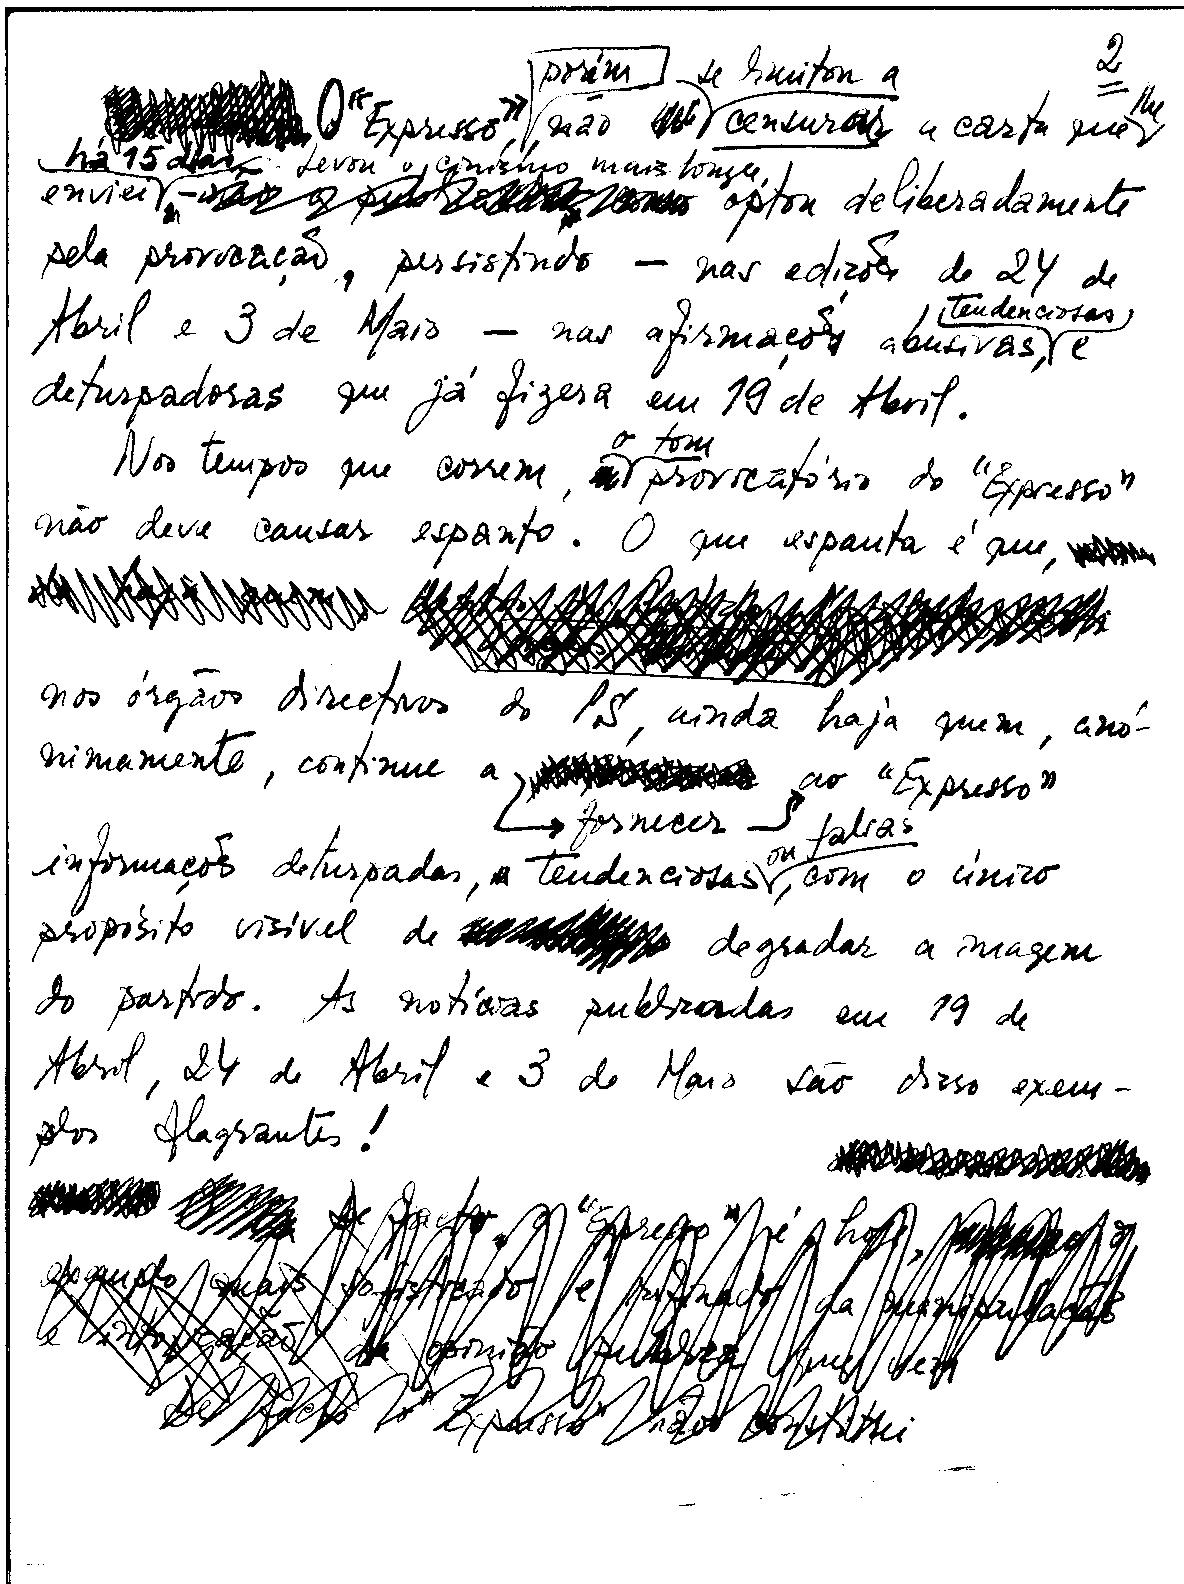 2
porém se limitou a
O "Expresso", não censurar a carta que lhe
há 15 dias levou o cinismo mais longe,
enviei optou deliberadamente
pela provocação, persistindo — nas edições de 24 de
Abril e 3 de Maio — nas afirmações abusivas, tendenciosas e
deturpadoras que já fizera em 19 de Abril.
Nos tempos que correm, o tom provocatório do "Expresso"
não deve causar espanto. O que espanta é que,
nos órgãos directivos do PS, ainda haja quem, anó-
nimamente, continue a fornecer ao "Expresso"
informações deturpadas, tendenciosas ou falsas, com o único
propósito visível de degradar a imagem
do partido. As notícias publicadas em 19 de
Abril, 24 de Abril e 3 de Maio são disso exem-
plos flagrantes!
De facto, o "Expresso" é hoje, o
mais sofisticado e refinado da manipulação
e intoxicação da opinião pública que vem
De facto o "Expresso" não constitui